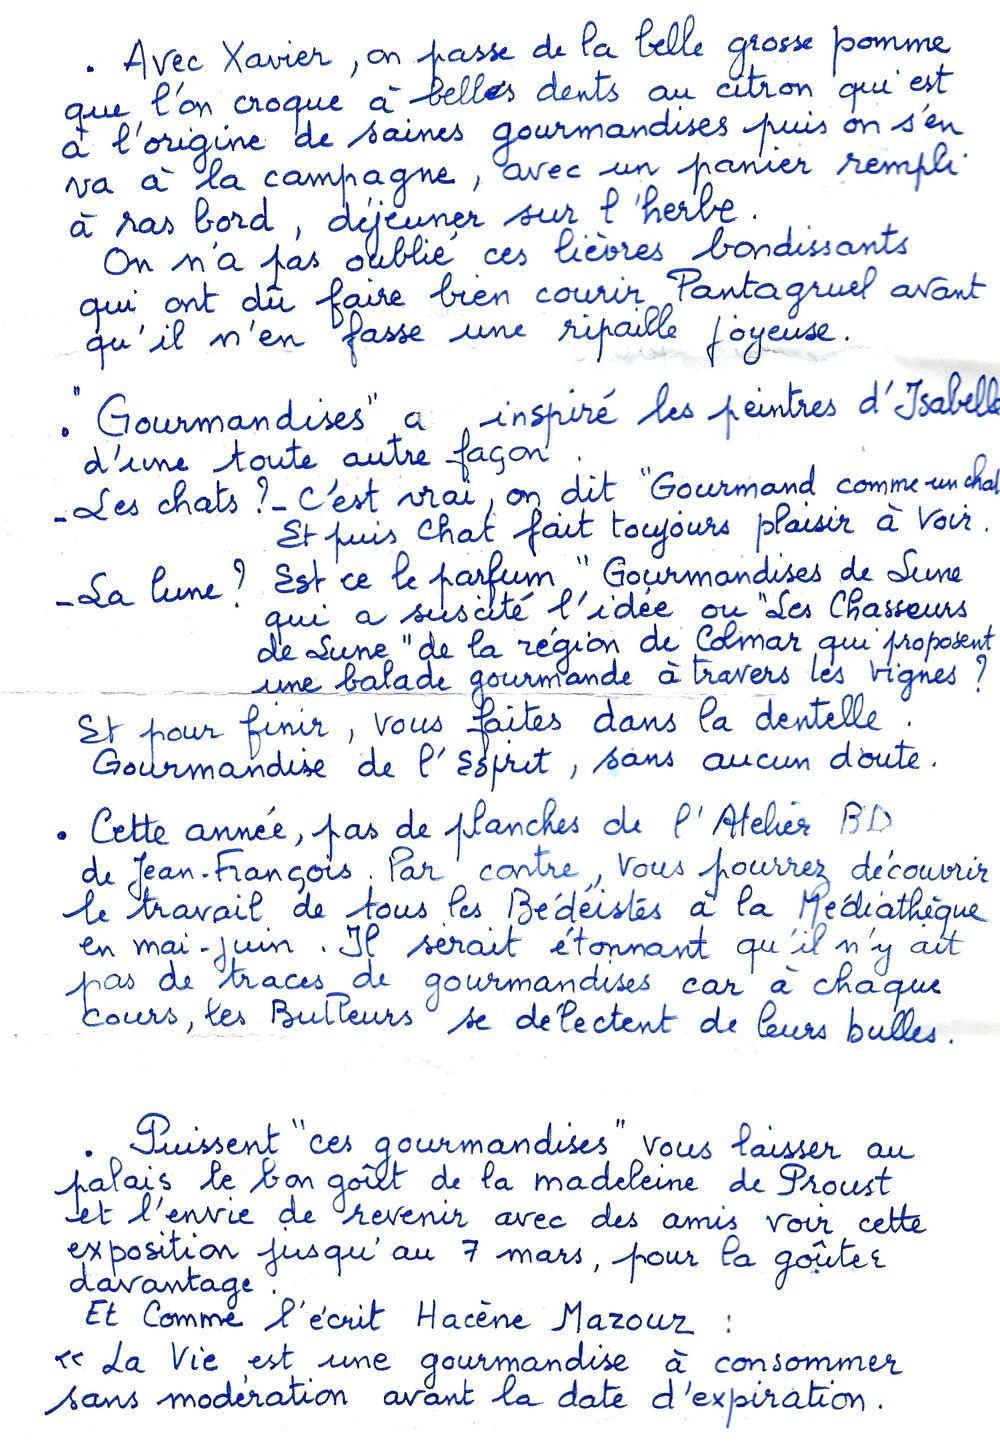 . Avec Xavier, on passe de la belle grosse pomme
que l'on croque à belles dents au citron qui est
à l'origine de saines gourmandises puis on s'en
va à la campagne, avec un panier rempli
à ras bord, déjeuner sur l'herbe.
On n'a pas oublié ces lièvres bondissants
qui ont dû faire bien courir Pantagruel avant
qu'il n'en fasse une ripaille joyeuse.
. "Gourmandises" a inspiré les peintres d'Isabelle
d'une toute autre façon.
- Les chats ? - C'est vrai, on dit "Gourmand comme un chat
Et puis Chat fait toujours plaisir à Voir.
- La lune ? Est ce le parfum "Gourmandises de Lune
qui a suscité l'idée ou "Les Chasseurs
de Lune" de la région de Colmar qui proposent
une balade gourmande à travers les vignes ?
Et pour finir, vous faites dans la dentelle.
Gourmandise de l'Esprit, sans aucun doute.
. Cette année, pas de planches de l'Atelier BD
de Jean-François. Par contre, vous pourrez découvrir
le travail de tous les Bédéistes à la Médiathèque
en mai-juin. Il serait étonnant qu'il n'y ait
pas de traces de gourmandises car à chaque
cours, les Bulleurs se délectent de leurs bulles.
. Puissent "ces gourmandises" vous laisser au
palais le bon goût de la madeleine de Proust
et l'envie de revenir avec des amis voir cette
exposition jusqu'au 7 mars, pour la goûter
davantage.
Et Comme l'écrit Hacène Mazouz :
« La Vie est une gourmandise à consommer
sans modération avant la date d'expiration.